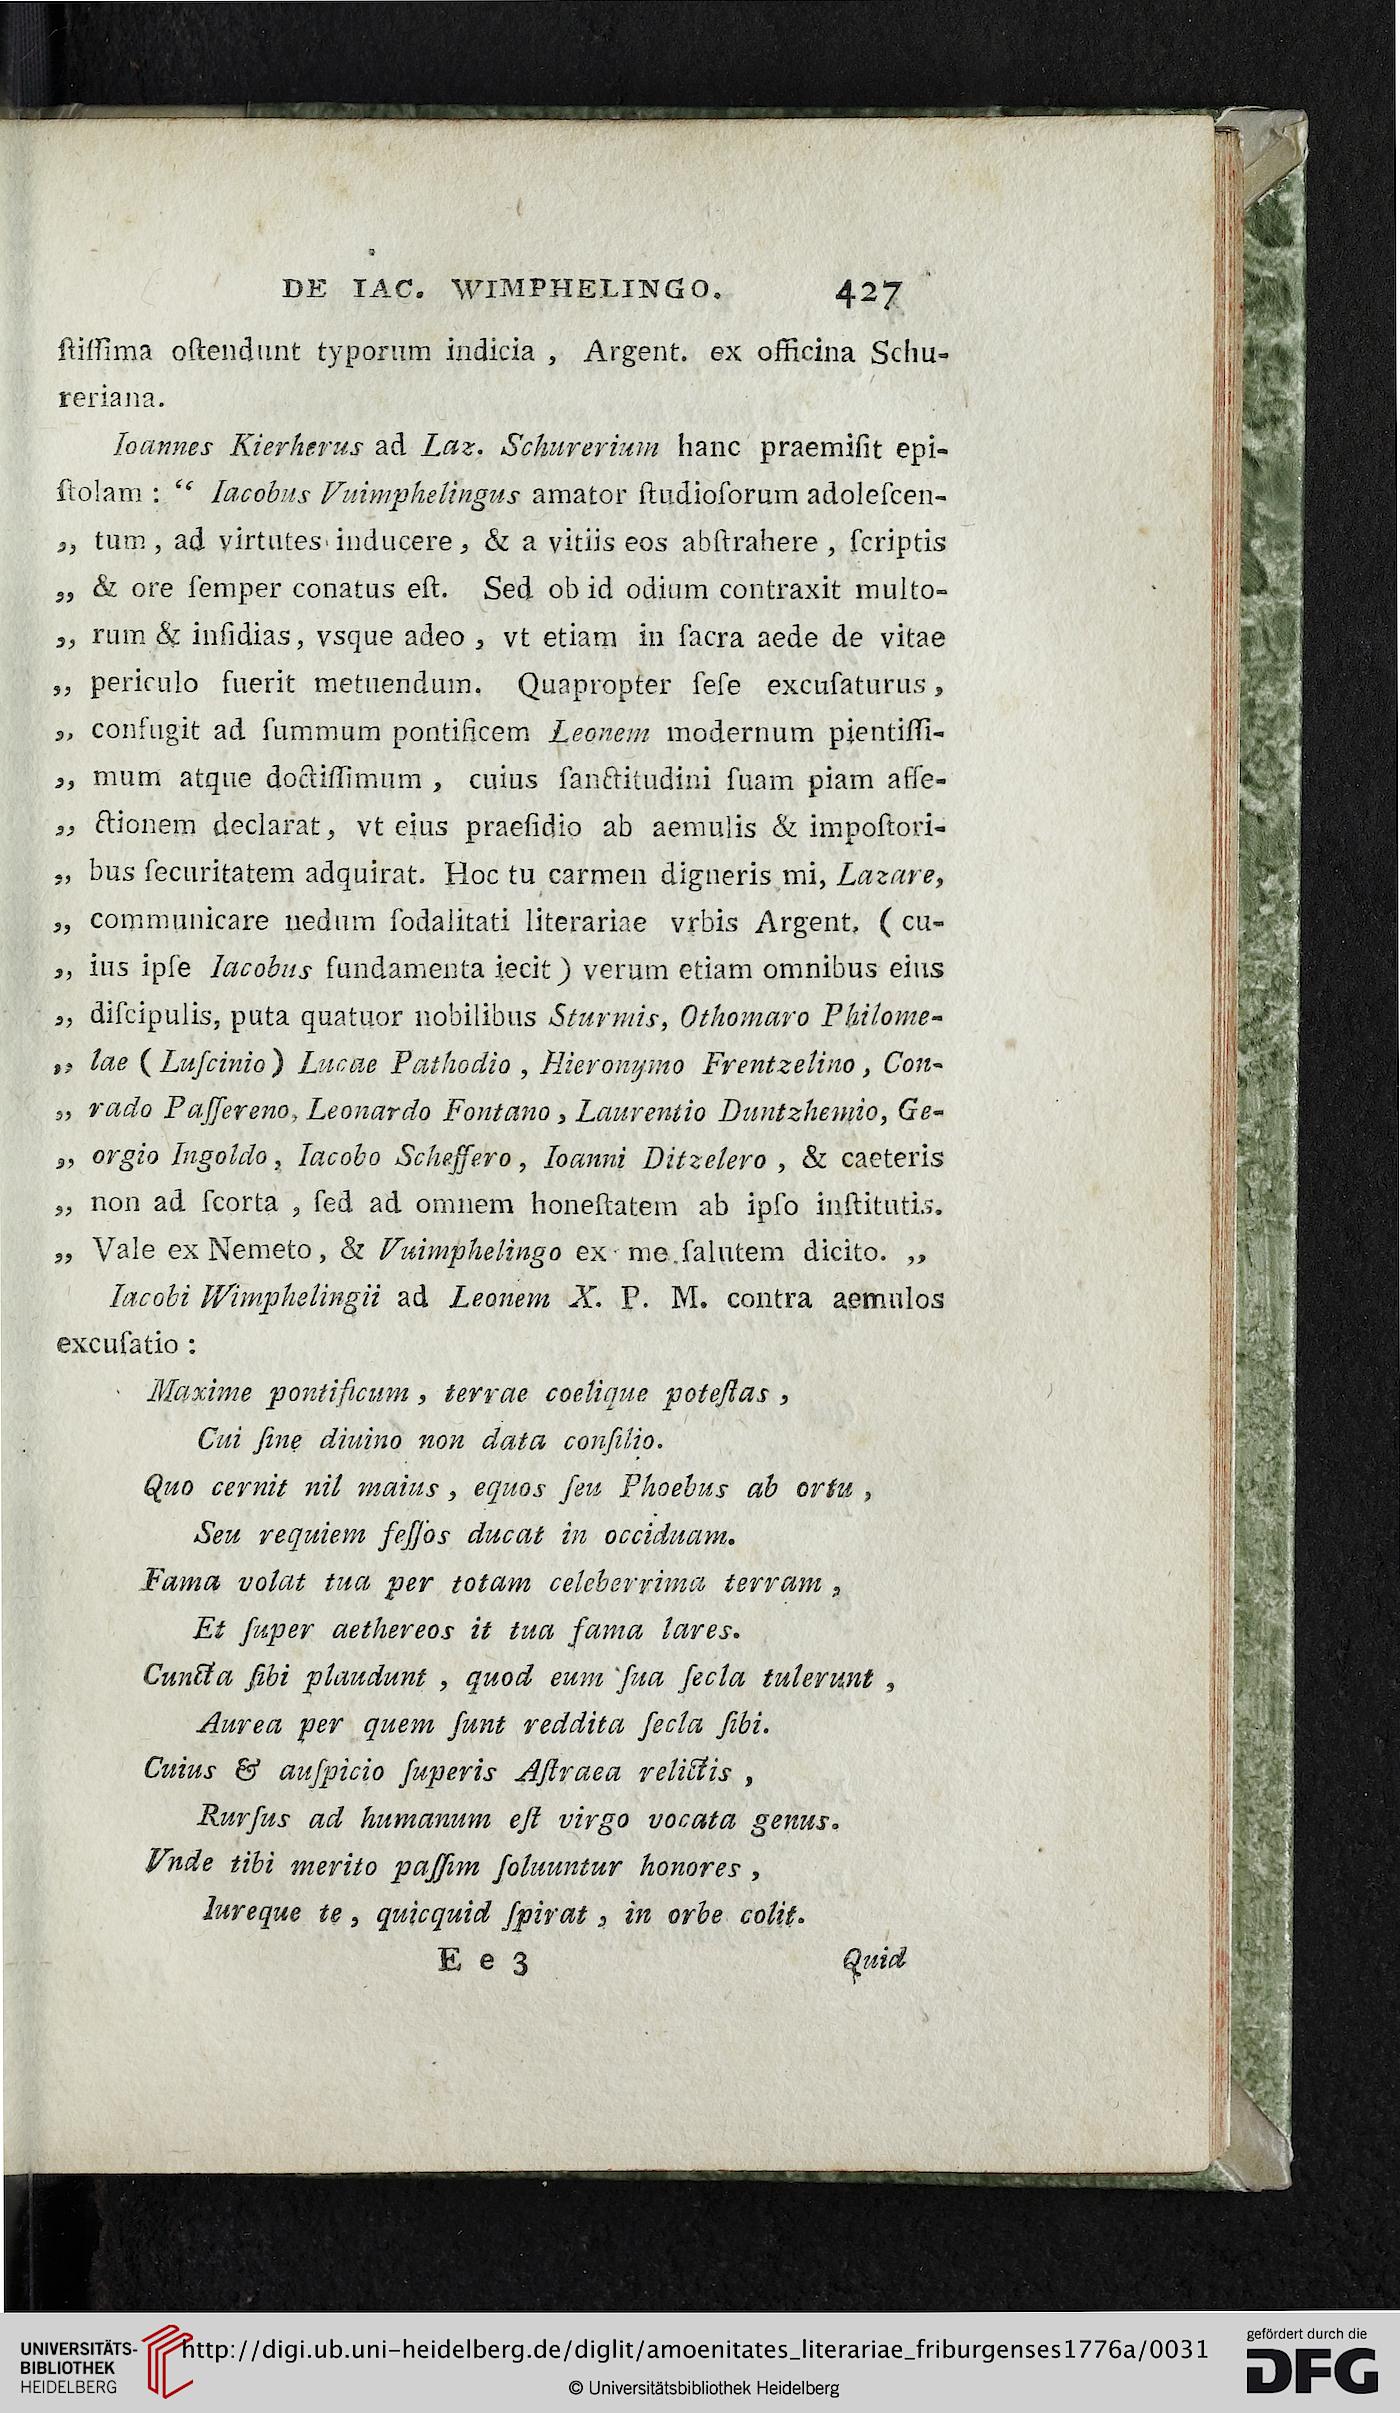 DE IAC. WIMPHELINGO. 427
ſtiſſima oſtendunt typorum indicia , Argent. ex officina Schu-
reriana.
Ioannes Kierherus ad Laz. Schurerium hanc praemiſit epi-
ſtolam : “ Iacobus Vuimphelingus amator ſtudioſorum adoleſcen-
„ tum , ad virtutes inducere , & a vitiis eos abſtrahere , ſcriptis
„ & ore ſemper conatus eſt. Sed ob id odium contraxit multo-
„ rum & inſidias, vsque adeo , vt etiam in ſacra aede de vitae
„ periculo fuerit metuendum. Quapropter ſeſe excuſaturus ,
„ confugit ad ſummum pontificem Leonem modernum pientiſſi-
„ mum atque doctiſſimum , cuius ſanctitudini ſuam piam affe-
„ ctionem declarat, vt eius praeſidio ab aemulis & impoſtori-
„ bus ſecuritatem adquirat. Hoc tu carmen digneris mi, Lazare,
„ communicare nedum ſodalitati literariae vrbis Argent. ( cu-
„ ius ipſe Iacobus fundamenta iecit ) verum etiam omnibus eius
„ diſcipulis, puta quatuor nobilibus Sturmis, Othomaro Philome-
„ lae ( Luſcinio ) Lucae Pathodio , Hieronymo Frentzelino , Con-
„ rado Paſſereno, Leonardo Fontano , Laurentio Duntzhemio, Ge-
„ orgio Ingoldo , Iacobo Scheffero , Ioanni Ditzelero , & caeteris
„ non ad ſcorta , ſed ad omnem honeſtatem ab ipſo inſtitutis.
„ Vale ex Nemeto , & Vuimphelingo ex me ſalutem dicito. „
Iacobi Wimphelingii ad Leonem X. P. M. contra aemulos
excuſatio :
Maxime pontificum , terrae coelique poteſtas ,
Cui ſine diuino non data conſilio.
Quo cernit nil maius , equos ſeu Phoebus ab ortu ,
Seu requiem feſſos ducat in occiduam.
Fama volat tua per totam celeberrima terram ,
Et ſuper aethereos it tua fama lares.
Cuncta ſibi plaudunt , quod eum ſua ſecla tulerunt ,
Aurea per quem ſunt reddita ſecla ſibi.
Cuius & auſpicio ſuperis Aſtraea relictis ,
Rurſus ad humanum eſt virgo vocata genus.
Vnde tibi merito paſſim ſoluuntur honores ,
Iureque te , quicquid ſpirat , in orbe colit.
E e 3 Quid
UNIVERSITÄTS-
BIBLIOTHEK
HEIDELBERG
http://digi.ub.uni-heidelberg.de/diglit/amoenitates_literariae_friburgenses1776a/0031
© Universitätsbibliothek Heidelberg
gefördert durch die
DFG